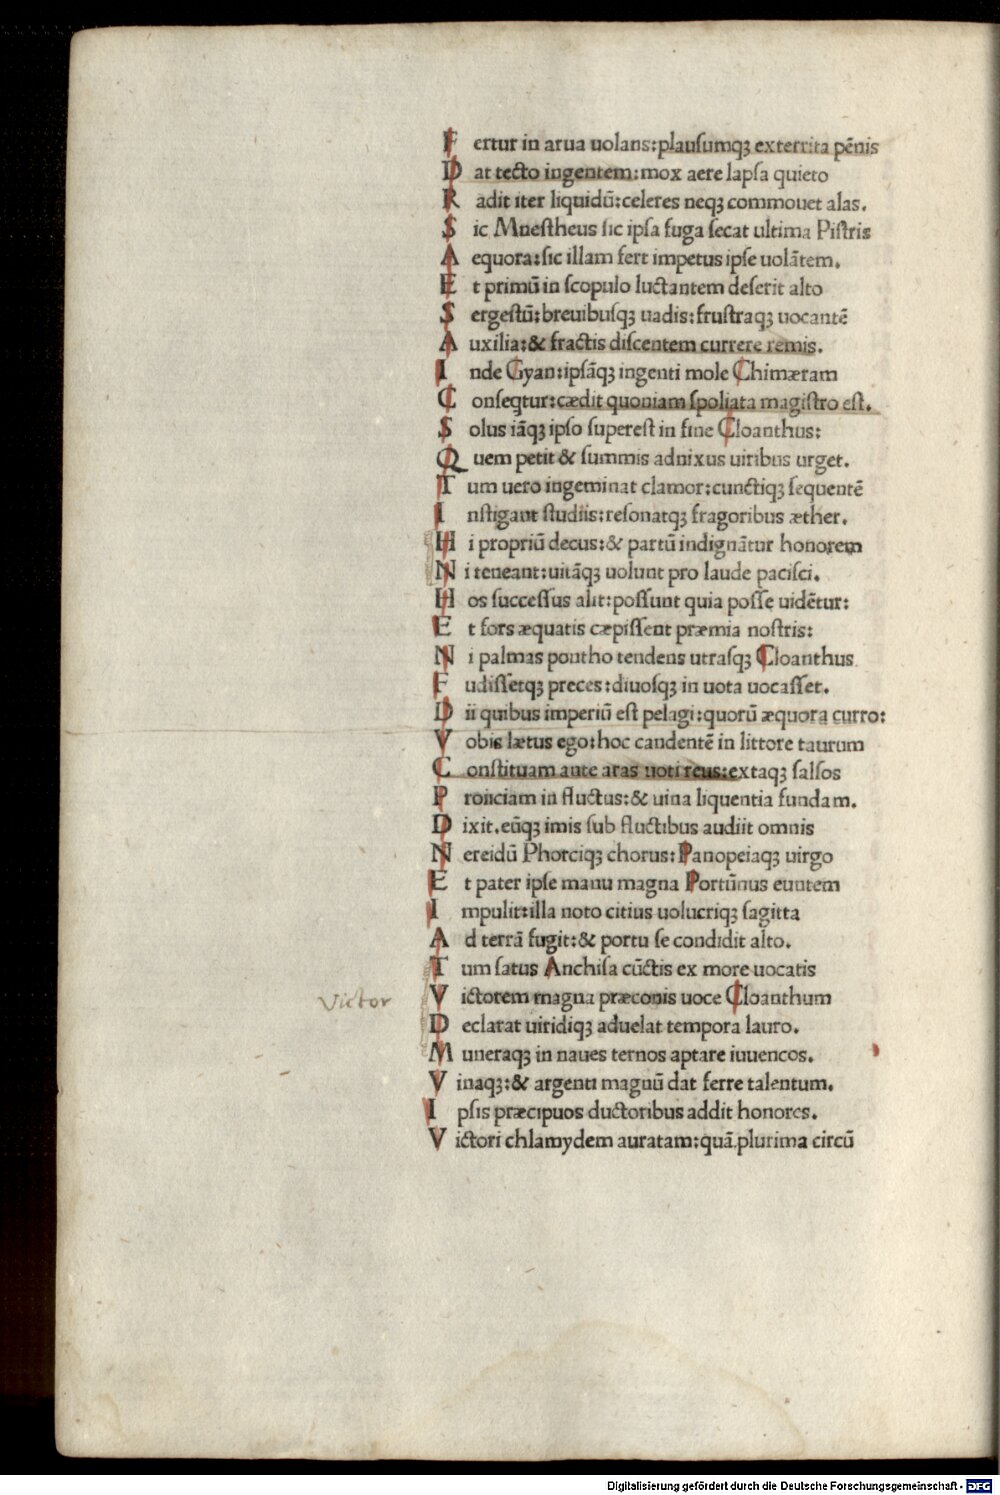 F ertur in arua uolans:plauſumqꝫ exterrita pẽnis
D at tecto ingentem:mox aere lapſa quieto
R adit iter liquidũ:celeres neqꝫ commouet alas.
S ic Mneſtheus ſic ipſa fuga ſecat ultima Piſtris
A equora:ſic illam fert impetus ipſe uolãtem.
E t primũ in ſcopulo luctantem deſerit alto
S ergeſtũ:breuibuſqꝫ uadis:fruſtraqꝫ uocantẽ
A uxilia:& fractis diſcentem currere remis.
I nde Gyan:ipſãqꝫ ingenti mole Chimæram
C onſeqtur:cædit quoniam ſpoliata magiſtro eſt.
S olus iãqꝫ ipſo ſupereſt in fine Cloanthus:
Q uem petit & ſummis adnixus uiribus urget.
T um uero ingeminat clamor:cunctiqꝫ ſequentẽ
I nſtigant ſtudiis:reſonatqꝫ fragoribus æther.
H i propriũ decus:& partũ indignãtur honorem
N i teneant:uitãqꝫ uolunt pro laude paciſci.
H os ſucceſſus alit:poſſunt quia poſſe uidẽtur:
E t fors æquatis cæpiſſent præmia noſtris:
N i palmas pontho tendens utraſqꝫ Cloanthus
F udiſſetqꝫ preces:diuoſqꝫ in uota uocaſſet.
D ii quibus imperiũ eſt pelagi:quorũ æquora curro:
V obis lætus ego:hoc candentẽ in littore taurum
C onſtituam ante aras uoti reus:extaqꝫ ſalſos
P roiiciam in fluctus:& uina liquentia fundam.
D ixit.eũqꝫ imis ſub fluctibus audiit omnis
N ereidũ Phorciqꝫ chorus:Panopeiaqꝫ uirgo
E t pater ipſe manu magna Portũnus euntem
I mpulit:illa noto citius uolucriqꝫ ſagitta
A d terrã fugit:& portu ſe condidit alto.
T um ſatus Anchiſa cũctis ex more uocatis
Victor
V ictorem magna præconis uoce Cloanthum
D eclarat uiridiqꝫ aduelat tempora lauro.
M uneraqꝫ in naues ternos aptare iuuencos.
V inaqꝫ:& argenti magnũ dat ferre talentum.
I pſis præcipuos ductoribus addit honores.
V ictori chlamydem auratam:quã plurima circũ
Digitalisierung gefördert durch die Deutsche Forschungsgemeinschaft - DFG